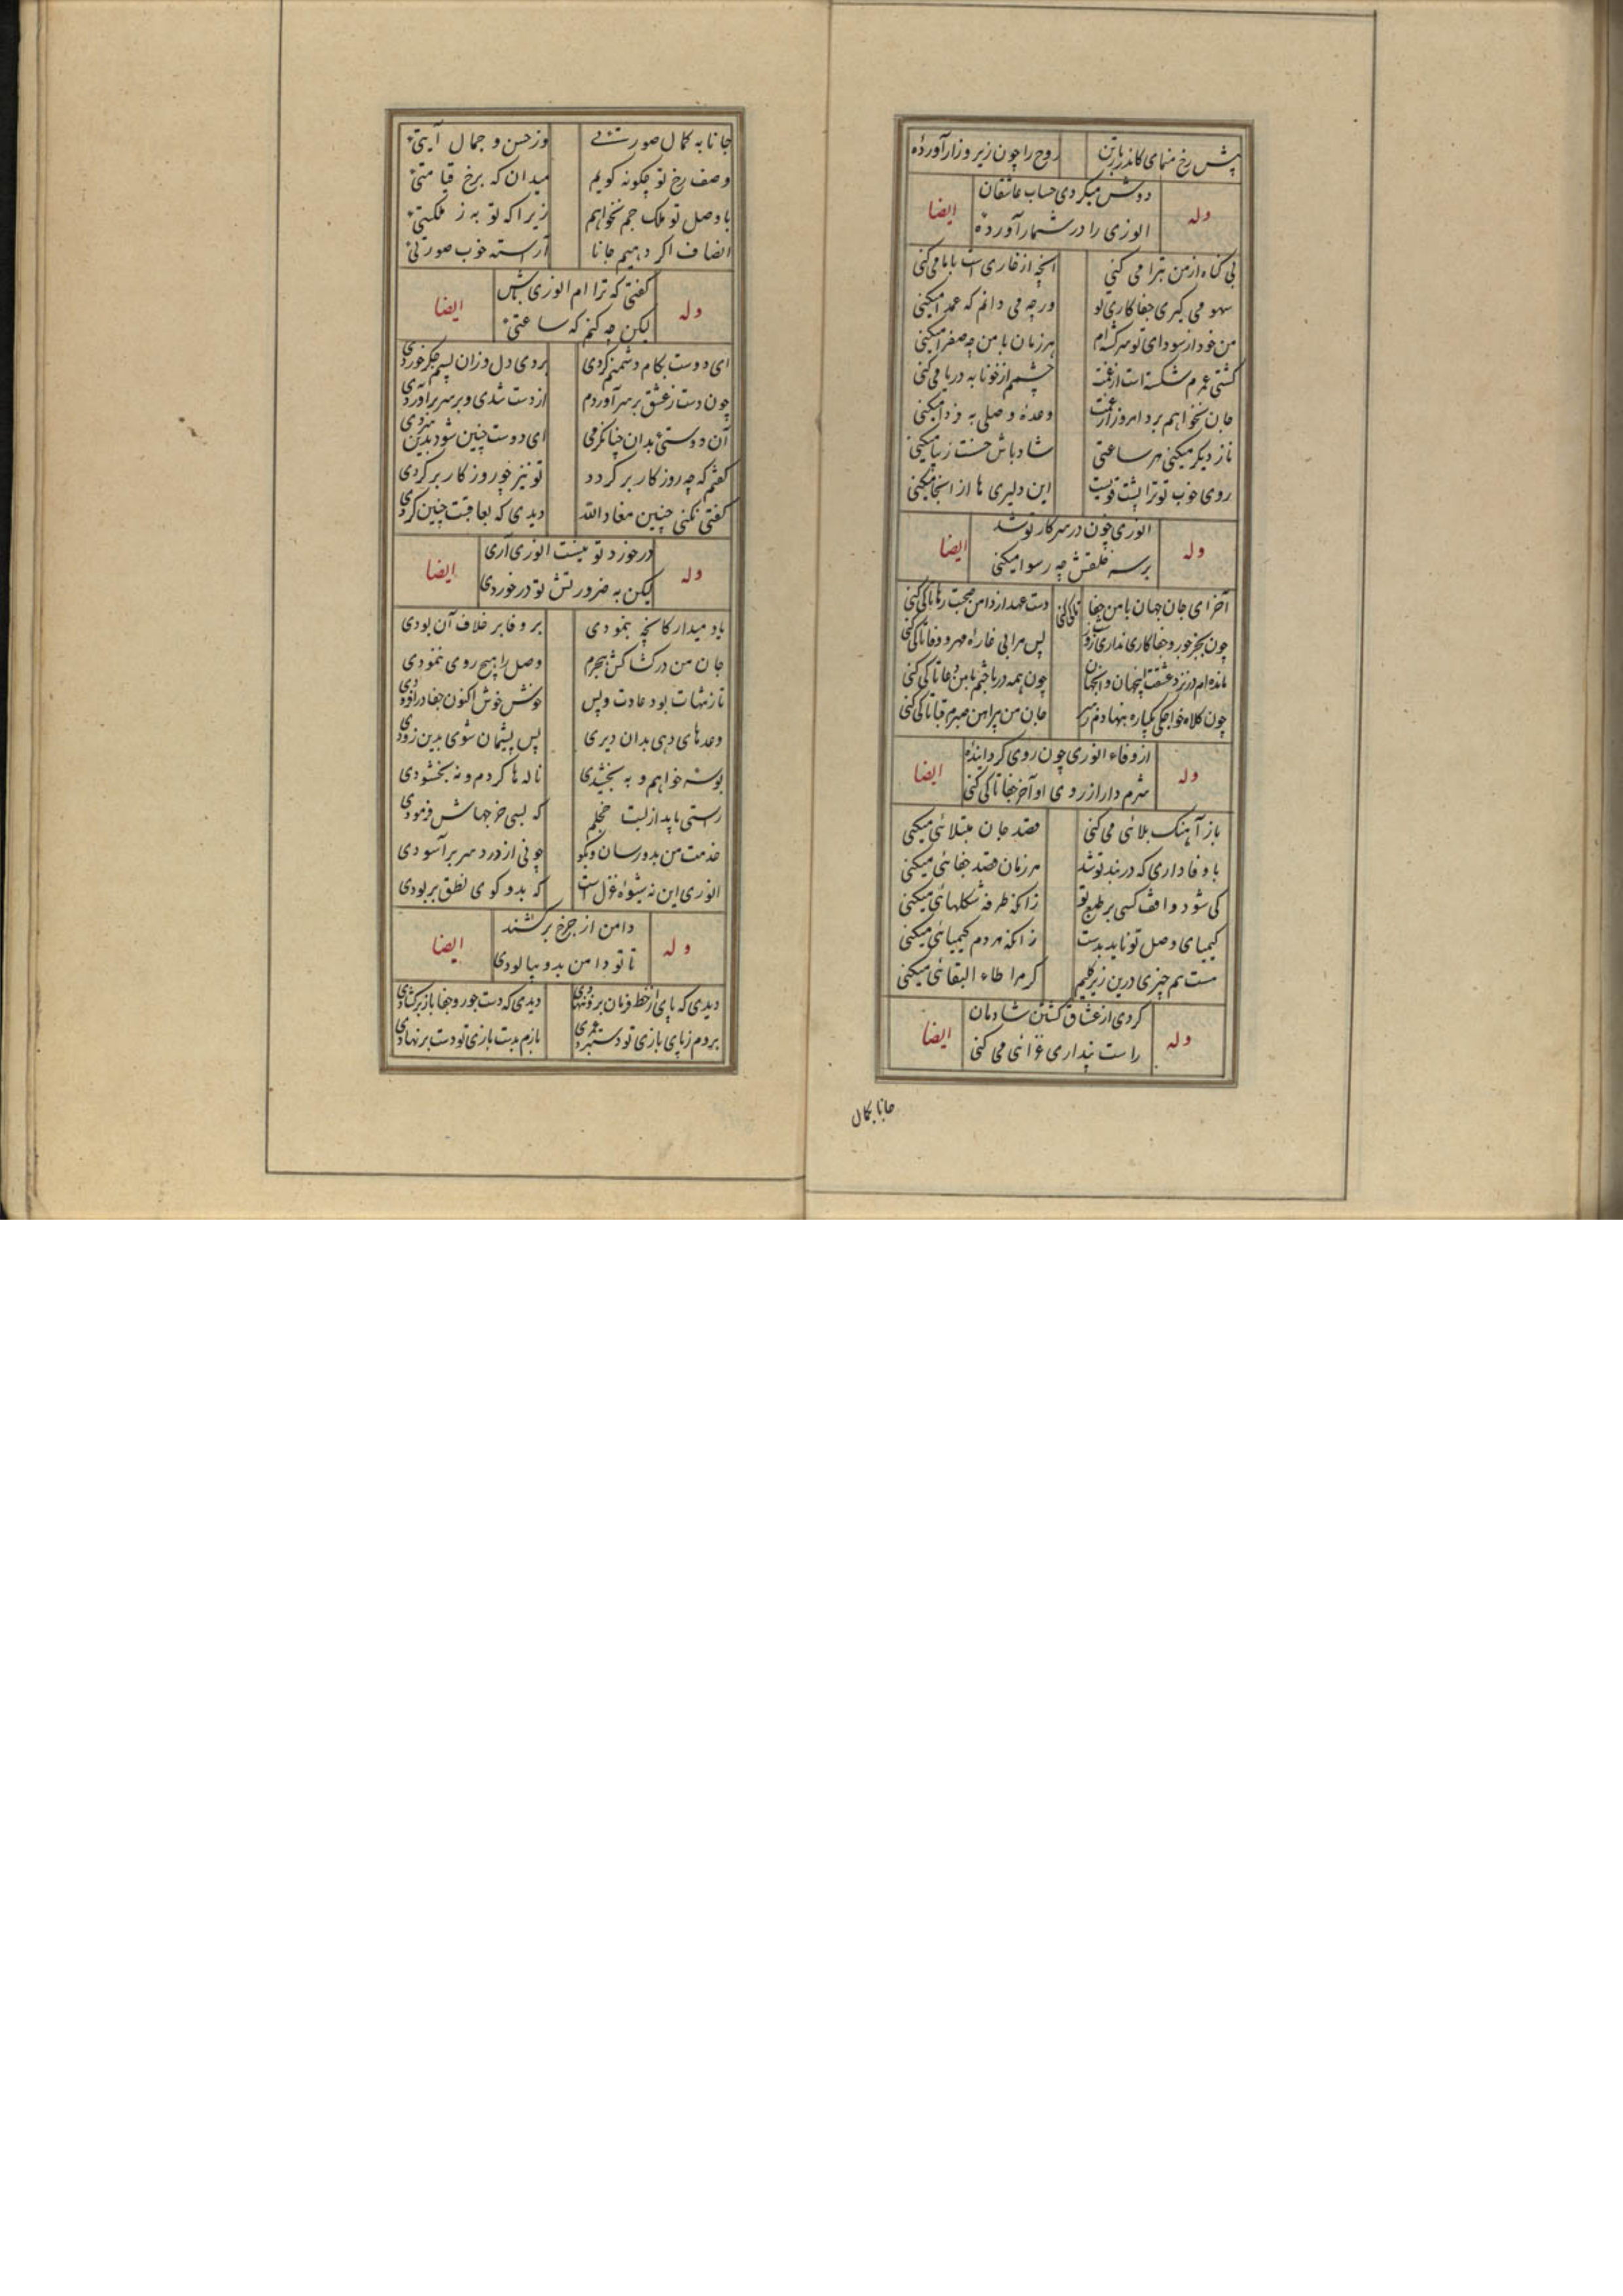 پیش رخ منمای کاندر باتن روح را چون زیر و زار آورده
وله دوش میکردی حساب عاشقان ایضا
انوری را در شمار آورده
بی گناه از من تبرا می کنی آنچه از خاری است با ما می کنی
سهو می گیری جفا کاری تو ورچه می دانم که عمدا میکنی
من خود از سودای تو سرگشته ام هر زمان با من چه صفرا میکنی
کشتی عمرم شکسته است از غمت چشمم از خونابه دریا می کنی
جان نخواهم برد امروز از غمت وعدهٔ وصلی به فردا میکنی
ناز دیگر میکنی هر ساعتی شاد باش حسنت زیبا میکنی
روی خوب تو ترا پشت قویست این دلیری ها از اینجا میکنی
وله انوری چون در سر کار تو شد ایضا
بر سر خلقش چه رسوا میکنی
آخر ای جان جهان با من جفا تا کی کنی دست عهد از دامن صحبت رها تا کی کنی
چون بجز جور و جفا کاری نداری روز شب پس مرا بی خار راه مهر و وفا تا کی کنی
مانده ام در نرد عشقت اینجهان و آنجهان چون همه در باختم با من دغا تا کی کنی
چون کلاه خواجگی یکباره بنهادم ز سر جان من پیراهن صبرم قبا تا کی کنی
وله از وفاء انوری چون روی گردانیده ایضا
شرم دار از روی او آخر جفا تا کی کنی
باز آهنگ بلائی می کنی قصد جان مبتلائی میکنی
با وفاداری که در بند تو شد هر زمان قصد جفائی میکنی
کی شود واقف کسی بر طبع تو زانکه طرفه شکلهائی میکنی
کیمیای وصل تو ناید بدست زانکه مردم کیمیائی میکنی
هست هم چیزی درین زیر گلیم کر مرا طاء البقائی میکنی
وله کردی از عشاق کشتن شادمان ایضا
راست پنداری غزائی می کنی
جانا بکمال
جانا به کمال صورتئی وز حسن و جمال آیتی
وصف رخ تو چگونه گویم میدان که برخ قیامتی
با وصل تو ملک جم نخواهم زیرا که تو به ز ملکتی
انصاف اگر دهیم جانا آراسته خوب صورتی
وله گفتی که ترا ام انوری باش ایضا
لیکن چه کنم که ساعتی
ای دوست بکام دشمنم کردی بردی دل و زان پسم جگر خوردی
چون دست ز عشق بر سر آوردم از دست شدی و بر سر آوردی
آن دوستی بدان چنان گرمی ای دوست چنین شود بدین سردی
گفتم که چه روزگار بر گردد تو نیز چو روزگار بر گردی
گفتی نکنی چنین معاذ الله دیدی که بعاقبت چنین کردی
وله در خورد تو نیست انوری آری ایضا
لیکن به ضرورتش تو در خوردی
یاد میدار کانچه بنمودی بر وفا بر خلاف آن بودی
جان من در کشاکش هجرم وصل را هیچ روی ننمودی
ناز تنهات بود عادت و پس خوش خوش اکنون جفا در افزودی
وعدهای دهی بدان دیری پس پشیمان شوی بدین زودی
بوسه خواهم و به بخشیدی ناله ها کردم و نه بخشودی
راستی باید از لبت خجلم که بسی خرجهاش فرمودی
خدمت من بدو رسان و بگو چونی از درد سر بر آسودی
انوری این نه شیوهٔ غزل است که بدو گوی نطق بر بودی
وله دامن از چرخ بر کشند ایضا
تا تو دامن بدو بیالودی
دیدی که پای از خط فرمان برون نهادی دیدی که دست جور و جفا باز بر گشادی
بردم ز پای بازی تو دستبرد عمری بازم بدست بازی تو دست بر نهادی